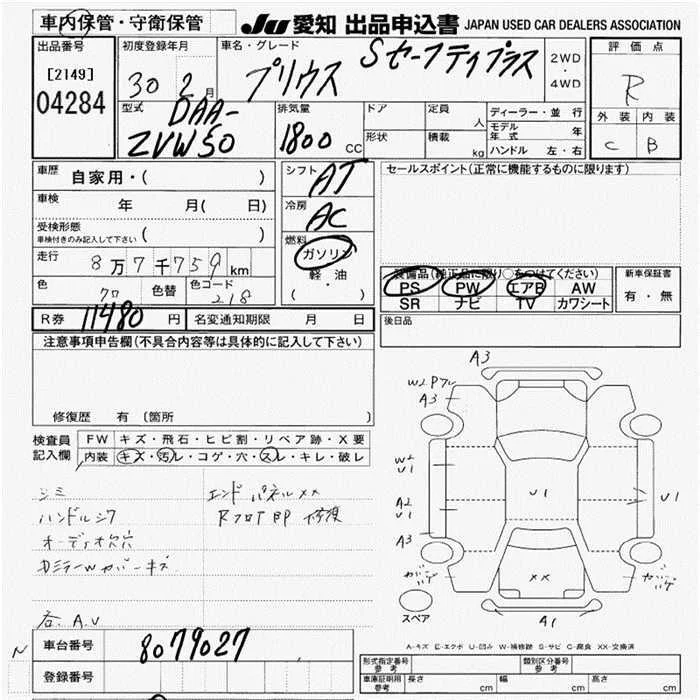 車内保管・守衛保管
JU 愛知 出品申込書 JAPAN USED CAR DEALERS ASSOCIATION
出品番号
[2149]
04284
初度登録年月
30 2月
車名・グレード
プリウス Sセーフティプラス
2WD
・
4WD
評価点
R
外装 内装
C B
型式
DAA-
ZVW50
排気量
1800 cc
ドア
定員 人
形状
積載 kg
ディーラー・並行
モデル年式 年
ハンドル 左・右
車歴
自家用・( )
車検
年 月( 日)
受検形態
車検付きのみ記入して下さい ( )
走行
8万7千759km
色
クロ
色替
色コード
218
シフト
AT
冷房
AC
燃料
ガソリン
軽・油
( )
セールスポイント(正常に機能するものに限ります)
装備品(純正品に限り○をつけてください)
PS PW エアB AW
SR ナビ TV カワシート
新車保証書
有・無
R券 11480 円
名変通知期限 月 日
後日品
注意事項申告欄(不具合内容等は具体的に記入して下さい)
修復歴 有 〔箇所
検査員
記入欄
FW キズ・飛石・ヒビ割・リペア跡・X要
内装 キズ・汚レ・コゲ・穴・スレ・キレ・破レ
シミ
ハンドルシワ
オーディオ穴
エンドパネルXX
修復
A3
A3
W2
U1
A2
U1
A3
U1
U1
XX
A1
スペア
A-キズ E-エクボ U-凹み W-補修跡 S-サビ C-腐食 XX-交換済
N
車台番号
8079027
登録番号
形式指定番号
参考
類別区分番号
参考
車庫証明用
参考
長さ cm
幅 cm
高さ cm